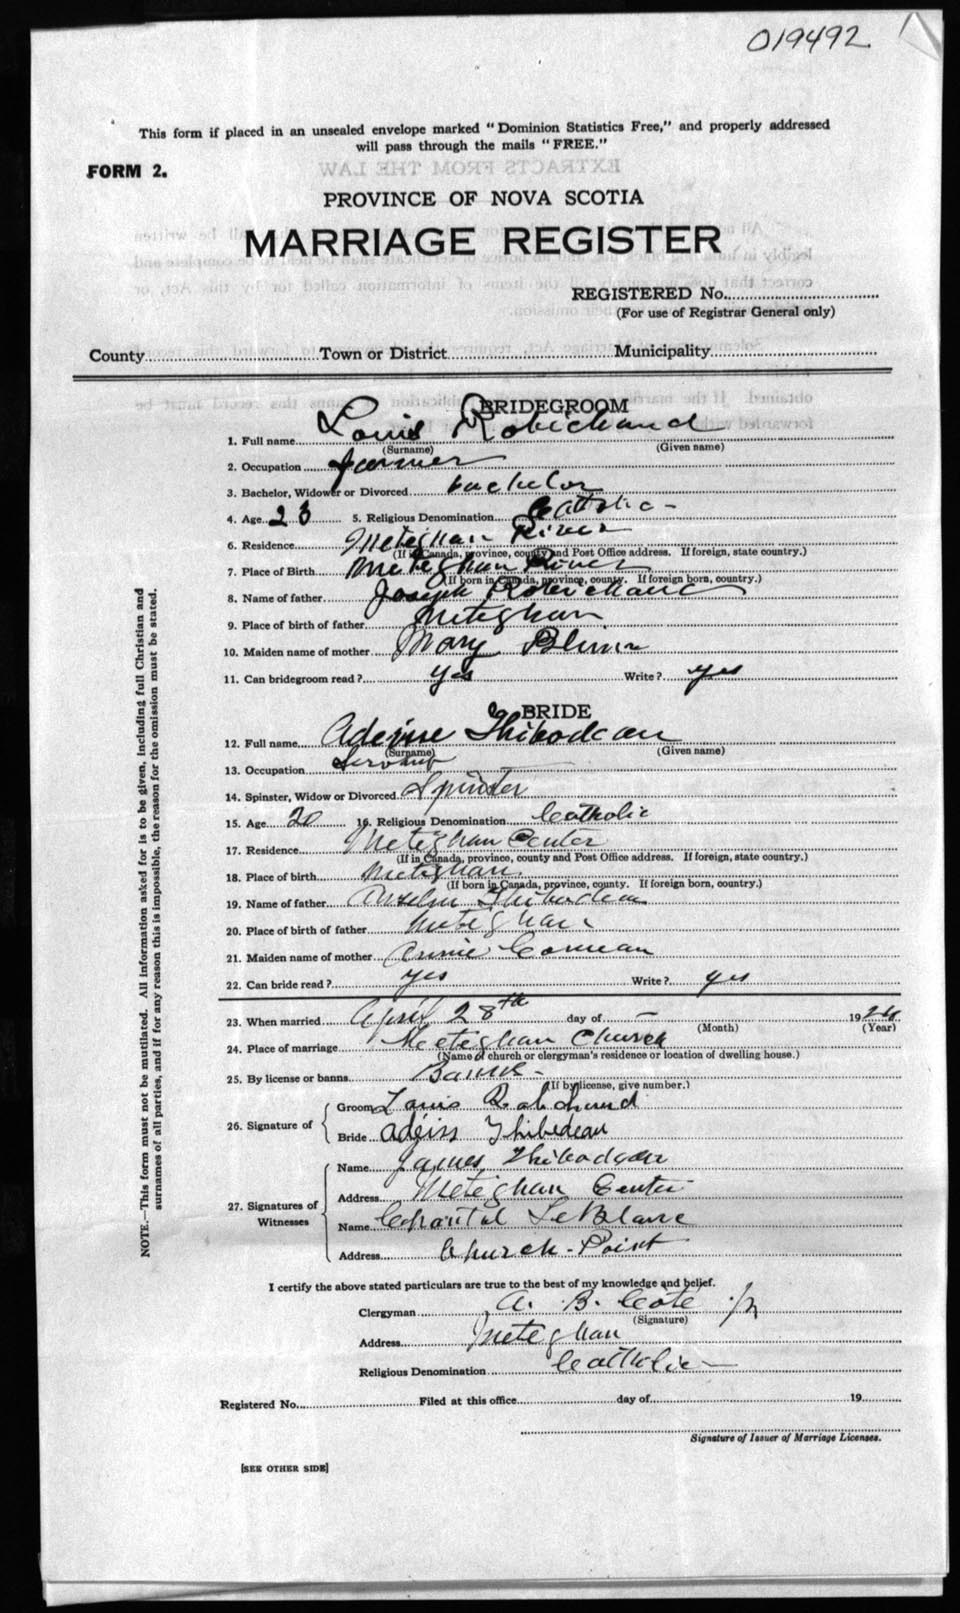 019492
This form if placed in an unsealed envelope marked "Dominion Statistics Free," and properly addressed
will pass through the mails "FREE."
FORM 2.
EXTRACTS FROM THE LAW
PROVINCE OF NOVA SCOTIA
MARRIAGE REGISTER
REGISTERED No.
(For use of Registrar General only)
County Town or District Municipality
BRIDEGROOM
1. Full name Louis Robichaud
(Surname) (Given name)
2. Occupation farmer
3. Bachelor, Widower or Divorced bachelor
4. Age 23 5. Religious Denomination Catholic
6. Residence Meteghan River
(If in Canada, province, county and Post Office address. If foreign, state country.)
7. Place of Birth Meteghan River
(If born in Canada, province, county. If foreign born, country.)
8. Name of father Joseph Robichaud
9. Place of birth of father Meteghan
10. Maiden name of mother Mary
11. Can bridegroom read? yes Write? yes
BRIDE
12. Full name Thibodeau
(Surname) (Given name)
13. Occupation Servant
14. Spinster, Widow or Divorced Spinster
15. Age 20 16. Religious Denomination Catholic
17. Residence Meteghan Center
(If in Canada, province, county and Post Office address. If foreign, state country.)
18. Place of birth Meteghan
(If born in Canada, province, county. If foreign born, country.)
19. Name of father Anselm Thibodeau
20. Place of birth of father Meteghan
21. Maiden name of mother Annie Comeau
22. Can bride read? yes Write? yes
23. When married April 28th day of 1924
(Month) (Year)
24. Place of marriage Meteghan Church
(Name of church or clergyman's residence or location of dwelling house.)
25. By license or banns Banns
(If by license, give number.)
26. Signature of
Groom Louis Robichaud
Bride Thibedeau
27. Signatures of Witnesses
Name James Thibodeau
Address Meteghan Center
Name Chantal LeBlanc
Address Church Point
I certify the above stated particulars are true to the best of my knowledge and belief.
Clergyman A. B. Cote
(Signature)
Address Meteghan
Religious Denomination Catholic
Registered No. Filed at this office day of 19
Signature of Issuer of Marriage Licenses.
[SEE OTHER SIDE]
NOTE.—This form must not be mutilated. All information asked for is to be given, including full Christian and
surnames of all parties, and if for any reason this is impossible, the reason for the omission must be stated.